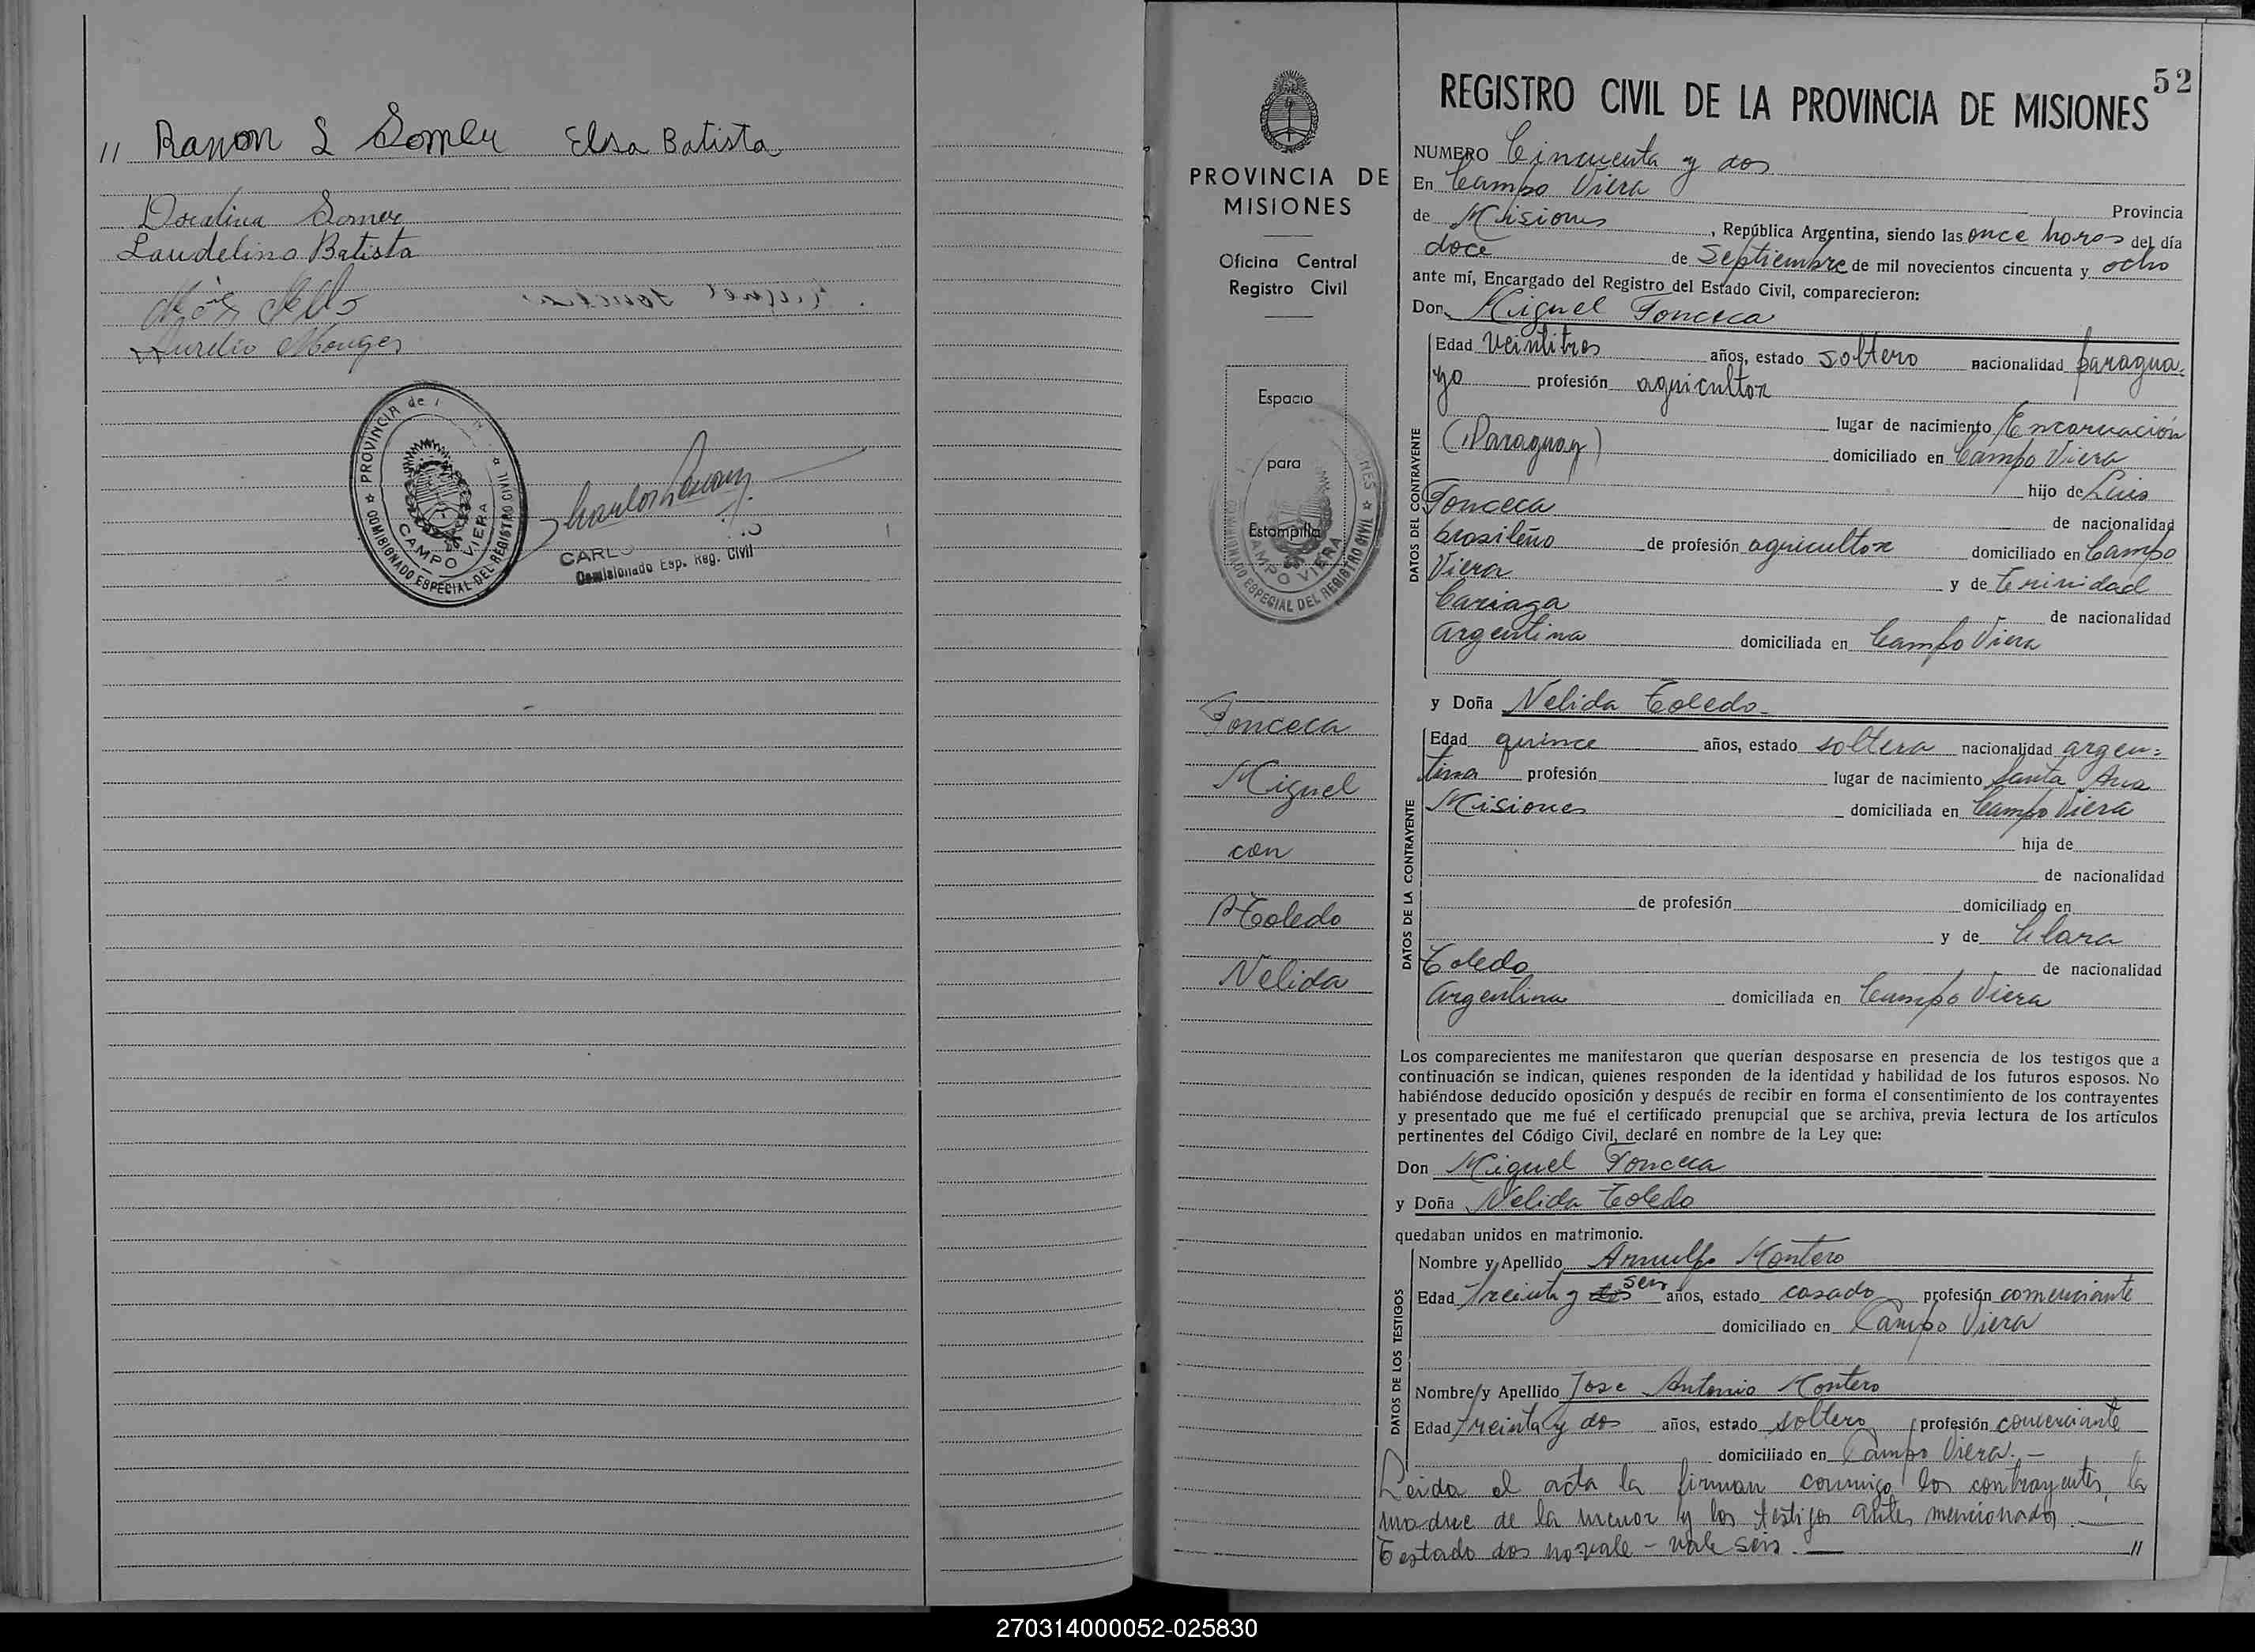 // Ramon L Somer Elsa Batista
Doralina Somer
Laudelino Batista
Aurelio Monges
PROVINCIA de
CAMPO VIERA
COMISIONADO ESPECIAL DEL REGISTRO CIVIL
CARL
Comisionado Esp. Reg. Civil
52
REGISTRO CIVIL DE LA PROVINCIA DE MISIONES
PROVINCIA DE
MISIONES
Oficina Central
Registro Civil
Espacio
para
Estampilla
CAMPO VIERA
COMISIONADO ESPECIAL DEL REGISTRO CIVIL
Fonceca
Miguel
con
Toledo
Nelida
NUMERO Cincuenta y dos
En Campo Viera Provincia
de Misiones, República Argentina, siendo las once horas del día
doce de Septiembre de mil novecientos cincuenta y ocho
ante mí, Encargado del Registro del Estado Civil, comparecieron:
Don Miguel Fonceca
DATOS DEL CONTRAYENTE
Edad veintitres años, estado soltero nacionalidad paragua-
yo profesión agricultor
lugar de nacimiento Encarnación
(Paraguay) domiciliado en Campo Viera
hijo de Luis
Fonceca de nacionalidad
brasileño de profesión agricultor domiciliado en Campo
Viera y de Trinidad
Cariaga de nacionalidad
Argentina domiciliada en Campo Viera
y Doña Nelida Toledo
DATOS DE LA CONTRAYENTE
Edad quince años, estado soltera nacionalidad argen=
tina profesión lugar de nacimiento Santa Ana
Misiones domiciliada en Campo Viera
hija de
de nacionalidad
de profesión domiciliado en
y de Clara
Toledo de nacionalidad
Argentina domiciliada en Campo Viera
Los comparecientes me manifestaron que querían desposarse en presencia de los testigos que a
continuación se indican, quienes responden de la identidad y habilidad de los futuros esposos. No
habiéndose deducido oposición y después de recibir en forma el consentimiento de los contrayentes
y presentado que me fué el certificado prenupcial que se archiva, previa lectura de los artículos
pertinentes del Código Civil, declaré en nombre de la Ley que:
Don Miguel Fonceca
y Doña Nelida Toledo
quedaban unidos en matrimonio.
DATOS DE LOS TESTIGOS
Nombre y Apellido Arnulfo Montero
Edad treinta y dos seis años, estado casado profesión comerciante
domiciliado en Campo Viera
Nombre y Apellido Jose Antonio Montero
Edad treinta y dos años, estado soltero profesión comerciante
domiciliado en Campo Viera.-
Leida el acta la firman conmigo los contrayentes, la
madre de la menor y los testigos antes mencionados.—
Testado dos no vale - vale seis.— //
270314000052-025830